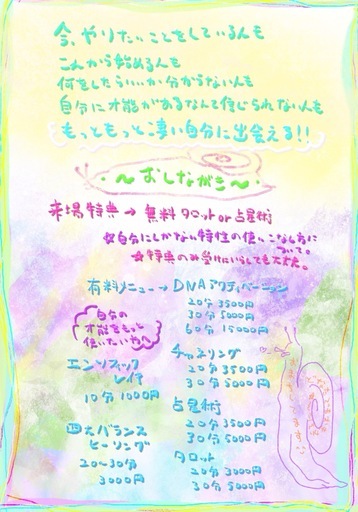 今、やりたいことをしているんも
こんから始めるんも
何をしたらいいか分からないんも
自分に才能があるなんて信じられないんも
もっともっと凄い自分に出会える!!
～おしながき～
来場特典→無料タロットor占星術
☆自分にしかない特性の使いこなし方に
ついて。
★特典のみ受けにいらしても大丈夫。
有料メニュー→DNAアクティベーション
20分3500円
30分5000円
60分15000円
自分の
才能をもっと
使いたい方へ
チャネリング
20分3500円
30分5000円
エンソフィック
レイキ
10分1000円
占星術
20分3500円
30分5000円
四大バランス
ヒーリング
20～30分
3000円
タロット
20分3000円
30分5000円